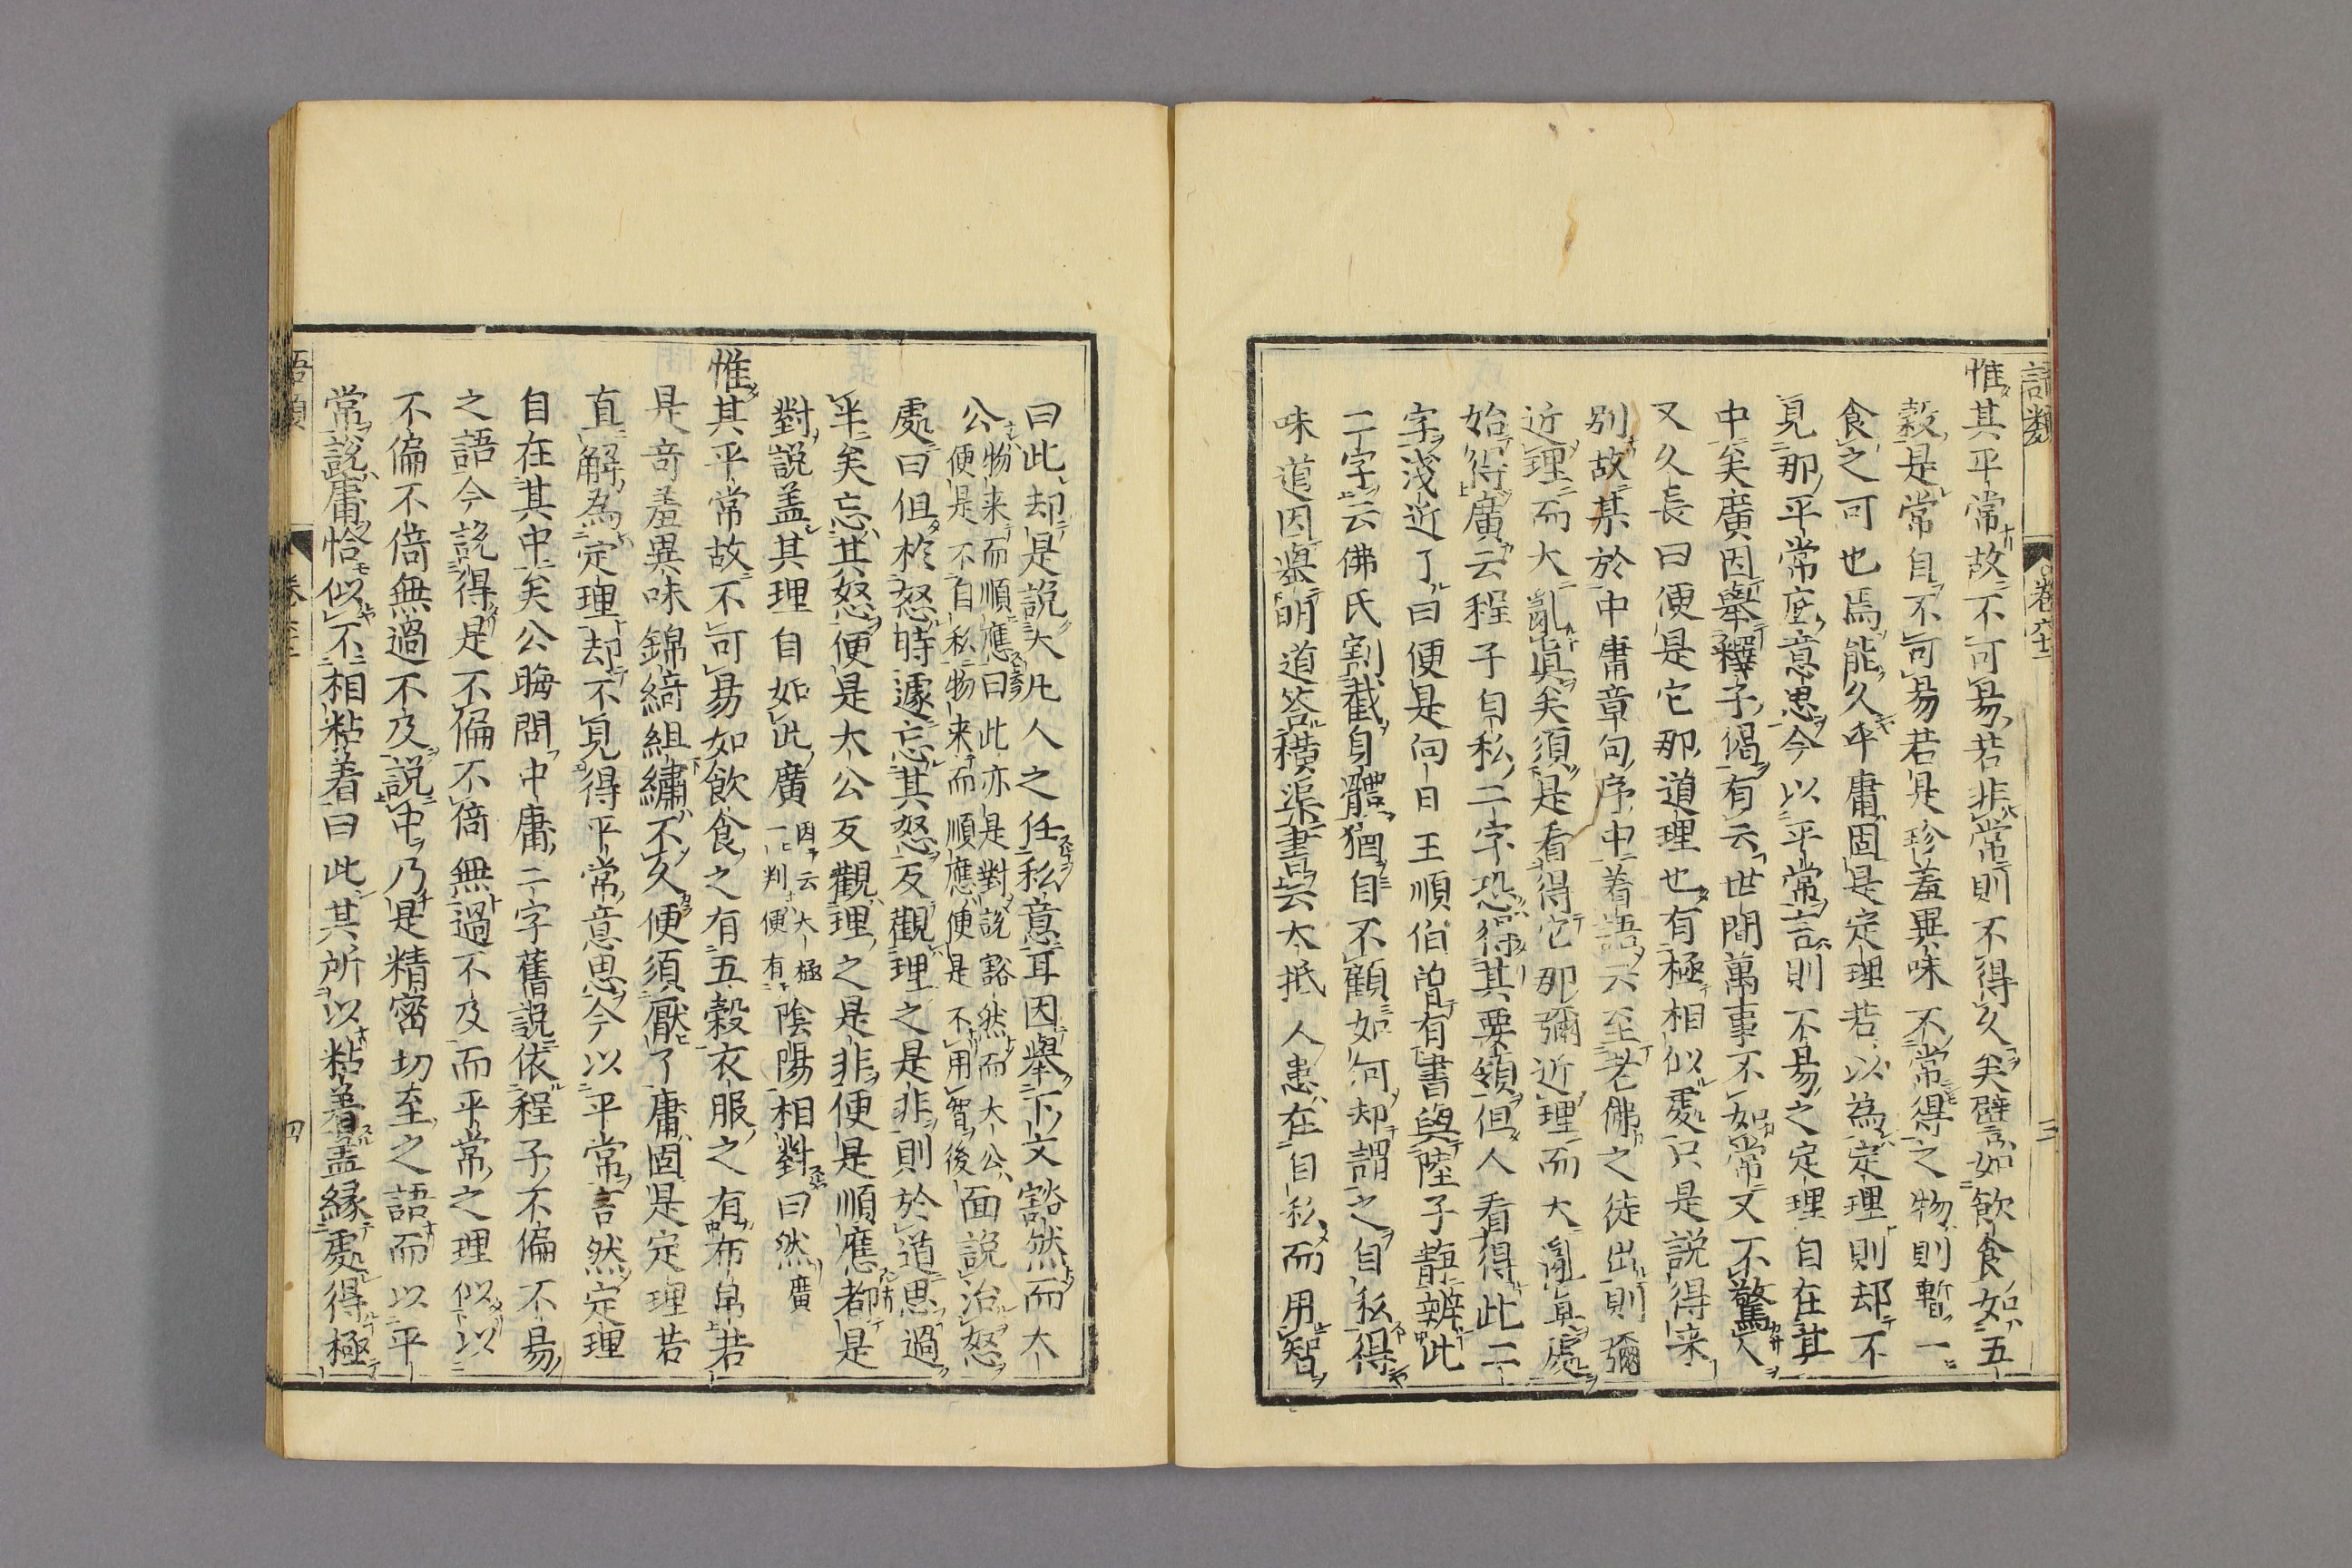 語類
卷六十二
三
惟其平常故不可易若非常則不得久矣譬如飲食如五
穀是常自不可易若是珍羞異味不常得之物則暫一
食之可也焉能久乎庸固是定理若以為定理則却不
見那平常底意思今以平常言則不易之定理自在其
中矣廣因舉釋子偈有云世間萬事不如常又不驚人
又久長曰便是它那道理也有極相似處只是說得來
別故某於中庸章句序中著語云至老佛之徒出則彌
近理而大亂真矣須是看得它那彌近理而大亂真處
始得廣云程子自私二字恐得其要領但人看得此二
字淺近了曰便是向日王順伯曾有書與陸子靜辨此
二字云佛氏割截身體猶自不顧如何却謂之自私得
味道因舉明道答橫渠書云大抵人患在自私而用智
曰此却是說大凡人之任私意耳因舉下文豁然而大
公物来而順應曰此亦是對說豁然而大公
便是不自私物来而順應便是不用智後面說治怒
處曰但於怒時遽忘其怒反觀理之是非則於道思過
半矣忘其怒便是大公反觀理之是非便是順應都是
對說盖其理自如此廣因云大極
一判便有陰陽相對曰然廣
惟其平常故不可易如飲食之有五穀衣服之有布帛若
是奇羞異味錦綺組繡不久便須厭了庸固是定理若
直解為定理却不見得平常意思今以平常言然定理
自在其中矣公晦問中庸二字舊說依程子不偏不易
之語今說得是不偏不倚無過不及而平常之理似以
不偏不倚無過不及說中乃是精密切至之語而以平
常說庸恰似不相粘着曰此其所以粘着盖緣處得極
語類
四